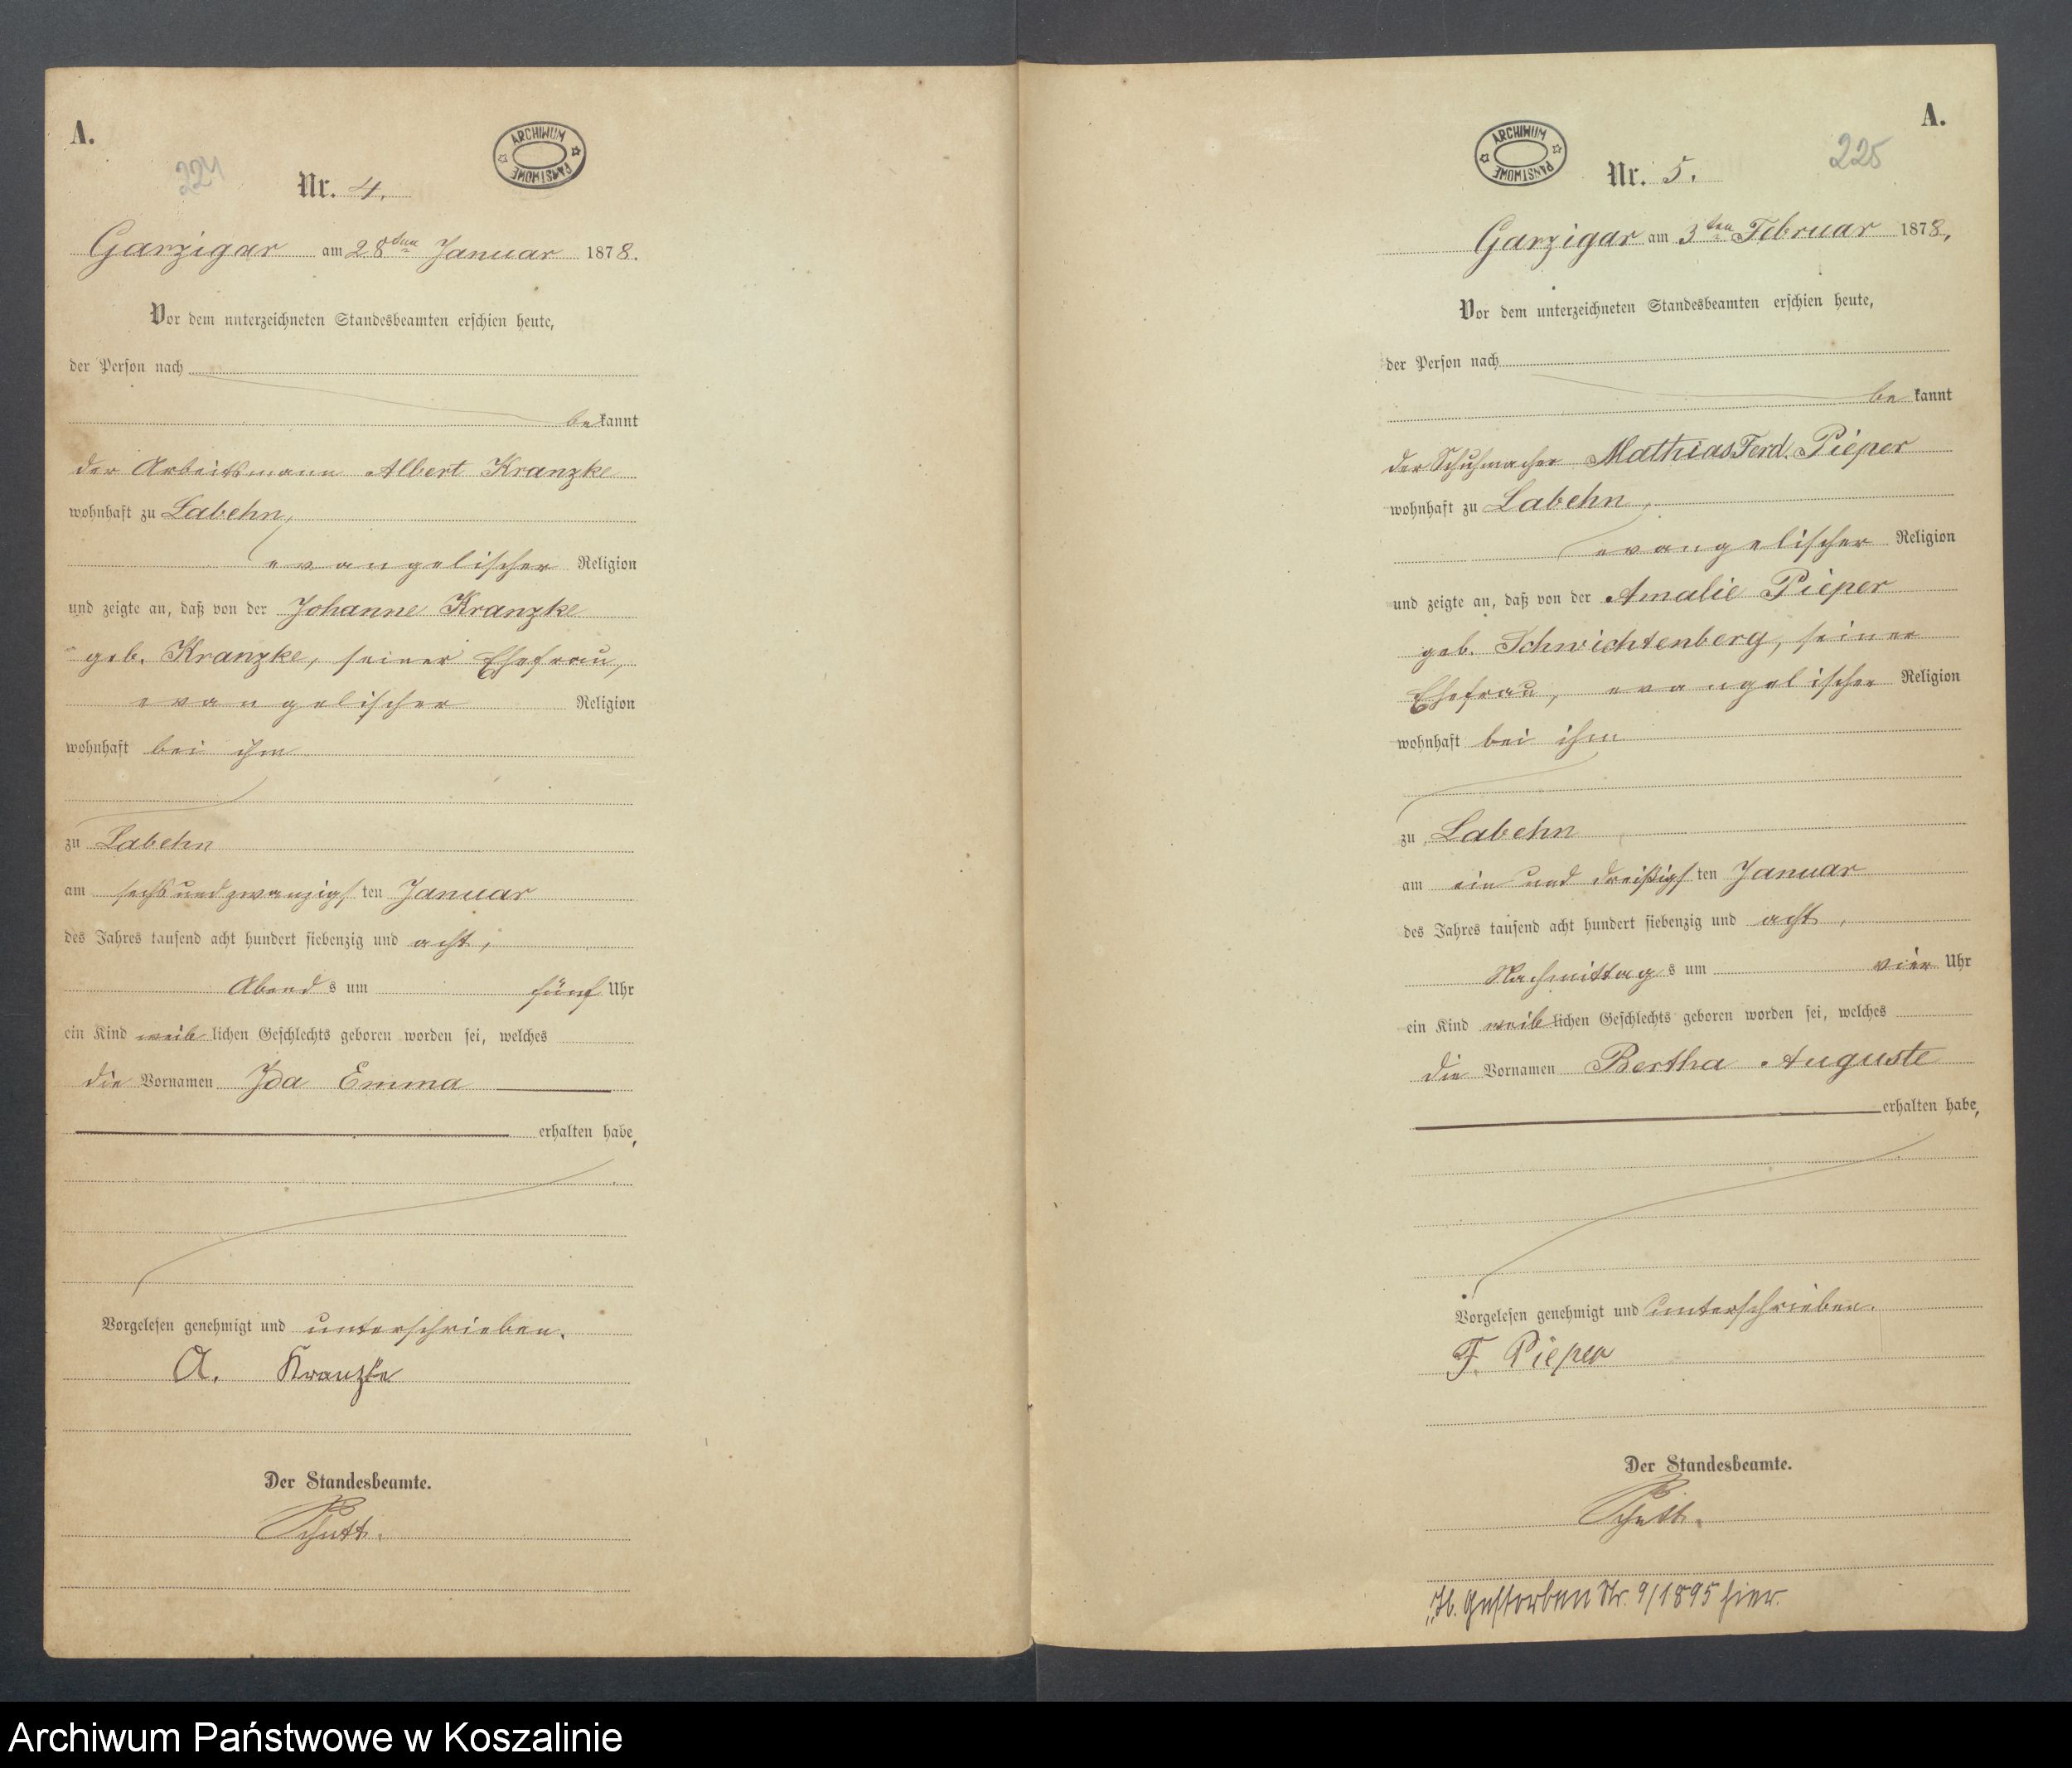 A.
224
Nr. 4.
ARCHIWUM PAŃSTWOWE
Garzigar am 28ten Januar 1878.
Vor dem unterzeichneten Standesbeamten erschien heute,
der Person nach
bekannt
der Arbeitsmann Albert Kranzke
wohnhaft zu Labehn,
evangelischer Religion
und zeigte an, daß von der Johanne Kranzke
geb. Kranzke, seiner Ehefrau,
evangelischer Religion
wohnhaft bei ihm
zu Labehn
am sechs und zwanzigsten Januar
des Jahres tausend acht hundert siebenzig und acht,
Abends um fünf Uhr
ein Kind weiblichen Geschlechts geboren worden sei, welches
die Vornamen Ida Emma
erhalten habe,
Vorgelesen genehmigt und unterschrieben.
A. Kranzke
Der Standesbeamte.
A.
225
Nr. 5.
ARCHIWUM PAŃSTWOWE
Garzigar am 3ten Februar 1878,
Vor dem unterzeichneten Standesbeamten erschien heute,
der Person nach
bekannt
der Schuhmacher Mathias Ferd. Pieper
wohnhaft zu Labehn,
evangelischer Religion
und zeigte an, daß von der Amalie Pieper
geb. Schwichtenberg, seiner
Ehefrau, evangelischer Religion
wohnhaft bei ihm
zu Labehn
am ein und dreißigsten Januar
des Jahres tausend acht hundert siebenzig und acht,
Nachmittags um vier Uhr
ein Kind weiblichen Geschlechts geboren worden sei, welches
die Vornamen Bertha Auguste
erhalten habe,
Vorgelesen genehmigt und unterschrieben.
F. Pieper
Der Standesbeamte.
Gestorben Nr. 9/1895 hier.
Archiwum Państwowe w Koszalinie